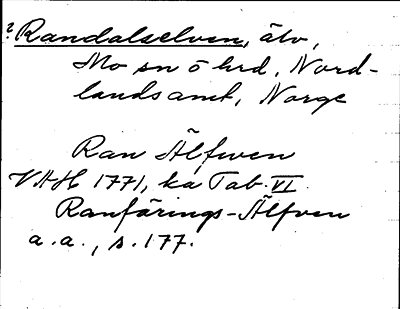 ? Randalselven, älv,
Mo sn o hrd, Nord-
landsamt, Norge
Ran Älfwen
VAH 1771, ka Tab. VI.
Ranfärings-Älfven
a. a., s. 177.